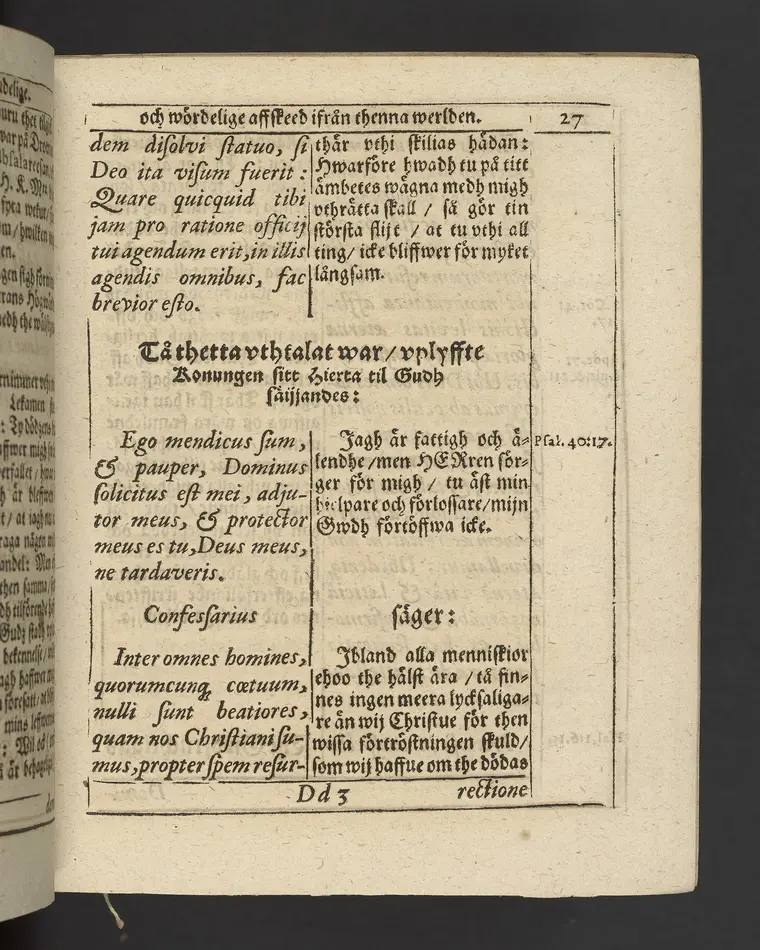 och wördelige affskeed ifrån thenna werlden. 27
dem disolvi statuo, si
Deo ita visum fuerit :
Quare quicquid tibi
jam pro ratione officij
tui agendum erit, in illis
agendis omnibus, fac
brevior esto.
thär vthi skilias hädan:
Hwarföre hwadh tu på titt
ämbetes wägna medh migh
vthrätta skall / så gör tin
största flijt / at tu vthi all
ting / icke bliffwer för myket
långsam.
Tå thetta vthtalat war / vplyffte
Konungen sitt Hierta til Gudh
säijjandes:
Ego mendicus sum,
& pauper, Dominus
solicitus est mei, adju-
tor meus, & protector
meus es tu, Deus meus,
ne tardaveris.
Jagh är fattigh och ä-
lendhe / men HERren sör-
ger för migh / tu äst min
hielpare och förlossare / mijn
Gwdh förtöffwa icke.
Psal. 40:17.
Confessarius säger:
Inter omnes homines,
quorumcunq; cœtuum,
nulli sunt beatiores,
quam nos Christiani su-
mus, propter spem resur-
Jbland alla menniskior
ehoo the hälst ära / tå fin-
nes ingen meera lycksaliga-
re än wij Christne för then
wissa förtröstningen skuld /
som wij haffue om the dödas
Dd 3 rectione